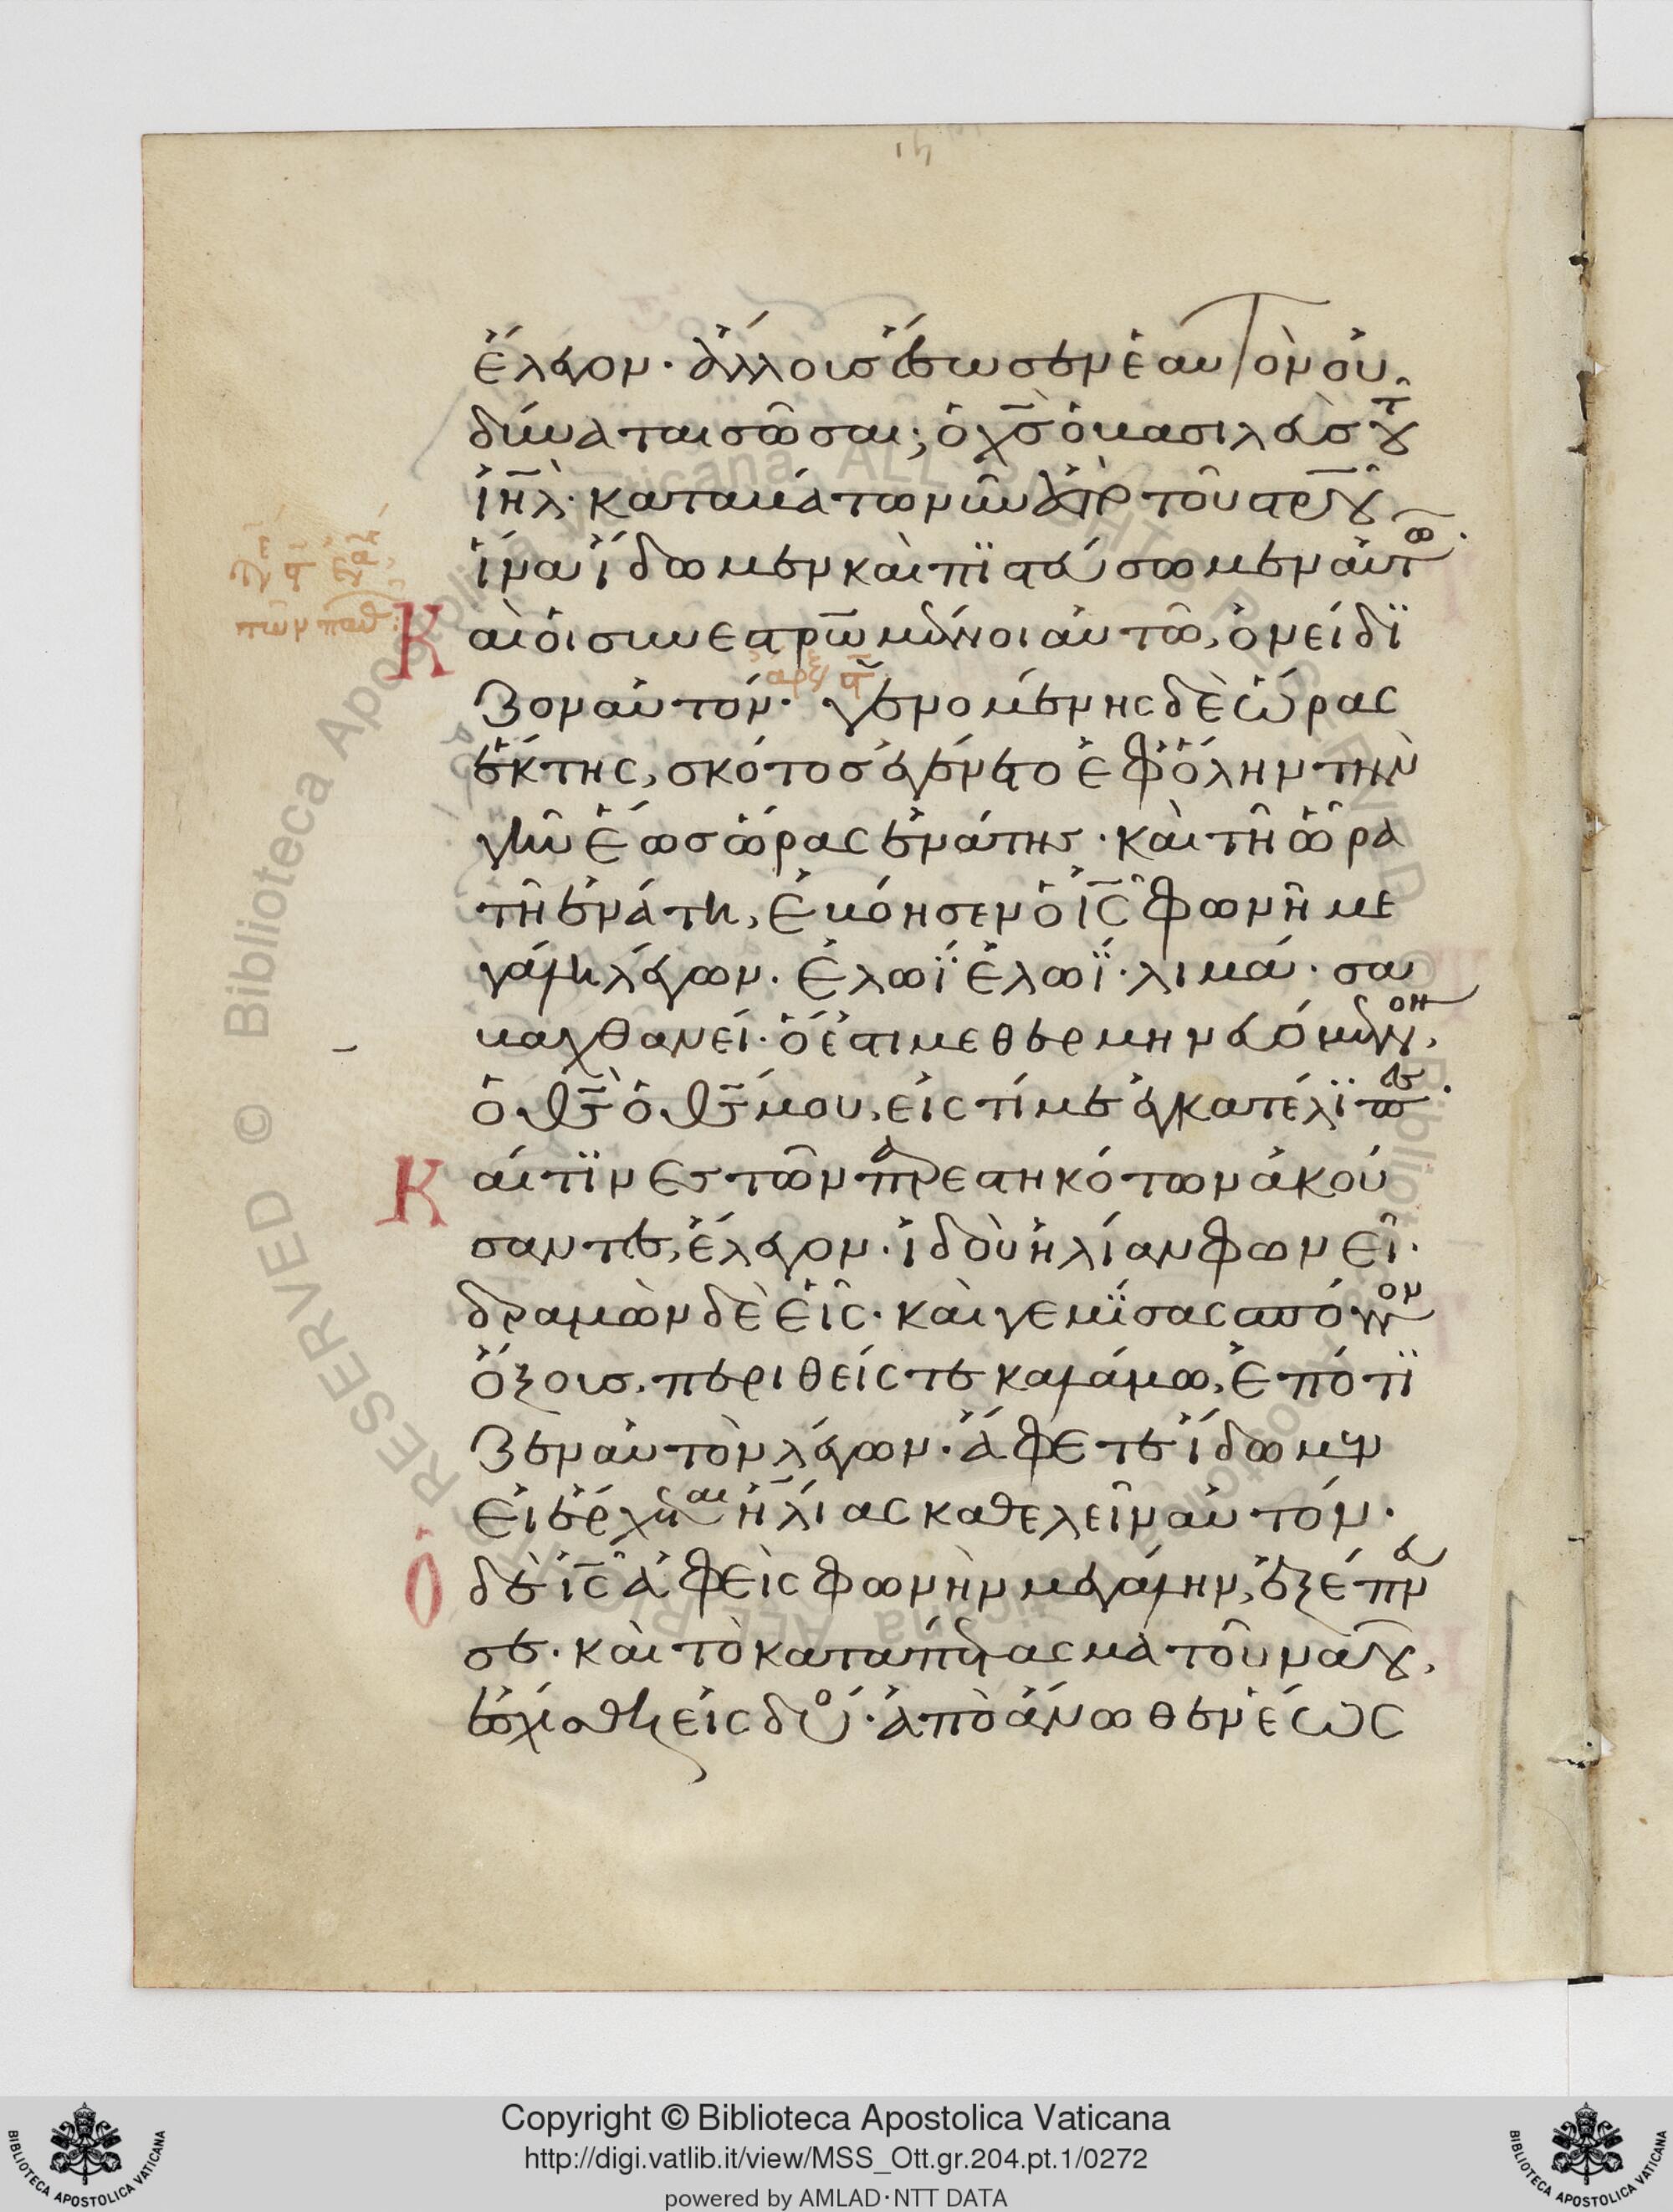 ἔλεγον· ἄλλους ἔσωσεν ἑαυτὸν οὐ
δύναται σῶσαι; ὁ χ̅ς̅ ὁ βασιλεὺς τοῦ
ἰ̅η̅λ̅· καταβάτω νῦν ἀπὸ τοῦ στ̅ρ̅ου
ἵνα ἴδωμεν καὶ πϊστεύσωμεν αὐτῶ·
Καὶ οἱ συνεστρ̅ωμένοι αὐτῶ, ὀνείδϊ
ζον αὐτόν· γενομένης δὲ ὥρας
ἕκτης, σκότος ἐγένετο ἐφ ὅλην τὴν
γῆν ἕως ὥρας ἐνάτης· καὶ τῆ ὥρα
τῆ ἐνάτη, ἐβόησεν ὁ ι̅ς̅ φωνῆ με
γάλη λέγων· ἐλωῒ ἐλωῒ· λιμά· σα
βαχθανεί· ὅ ἐστι μεθερμηνευόμενον,
ὁ θ̅ς̅ ὁ θ̅ς̅ μου, εἰς τί με ἐγκατέλϊπες·
Καί τϊνες τῶν παρεστηκότων ἀκού
σαντες, ἔλεγον· ἰδοὺ ἠλίαν φωνεῖ·
δραμὼν δὲ εἷς· καὶ γεμΐσας σπόγγον
ὄξους, περιθείς τε καλάμω, ἐπότϊ
ζεν αὐτὸν λέγων· ἄφετε ἴδωμεν
εἰ ἔρχεται ἠλίας καθελεῖν αὐτόν·
Ὁ δὲ ι̅ς̅ ἀφεὶς φωνὴν μεγάλην, ἐξέπνευ
σε· καὶ τὸ καταπέτασμα τοῦ ναοῦ,
ἐσχίσθη εἰς δύο· ἀπὸ ἄνωθεν ἕως
Copyright © Biblioteca Apostolica Vaticana
http://digi.vatlib.it/view/MSS_Ott.gr.204.pt.1/0272
powered by AMLAD·NTT DATA
BIBLIOTECA APOSTOLICA VATICANA
BIBLIOTECA APOSTOLICA VATICANA